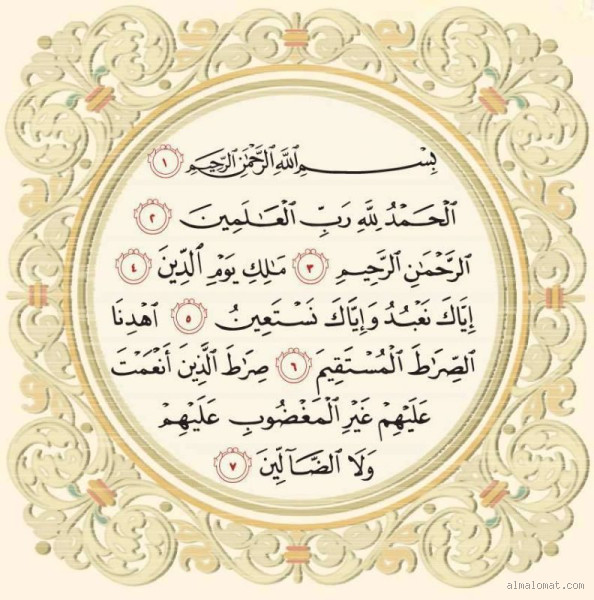 بِسْمِ ٱللَّهِ ٱلرَّحْمَٰنِ ٱلرَّحِيمِ ١
ٱلْحَمْدُ لِلَّهِ رَبِّ ٱلْعَٰلَمِينَ ٢
ٱلرَّحْمَٰنِ ٱلرَّحِيمِ ٣ مَٰلِكِ يَوْمِ ٱلدِّينِ ٤
إِيَّاكَ نَعْبُدُ وَإِيَّاكَ نَسْتَعِينُ ٥ ٱهْدِنَا
ٱلصِّرَٰطَ ٱلْمُسْتَقِيمَ ٦ صِرَٰطَ ٱلَّذِينَ أَنْعَمْتَ
عَلَيْهِمْ غَيْرِ ٱلْمَغْضُوبِ عَلَيْهِمْ
وَلَا ٱلضَّآلِّينَ ٧
almalomat.com